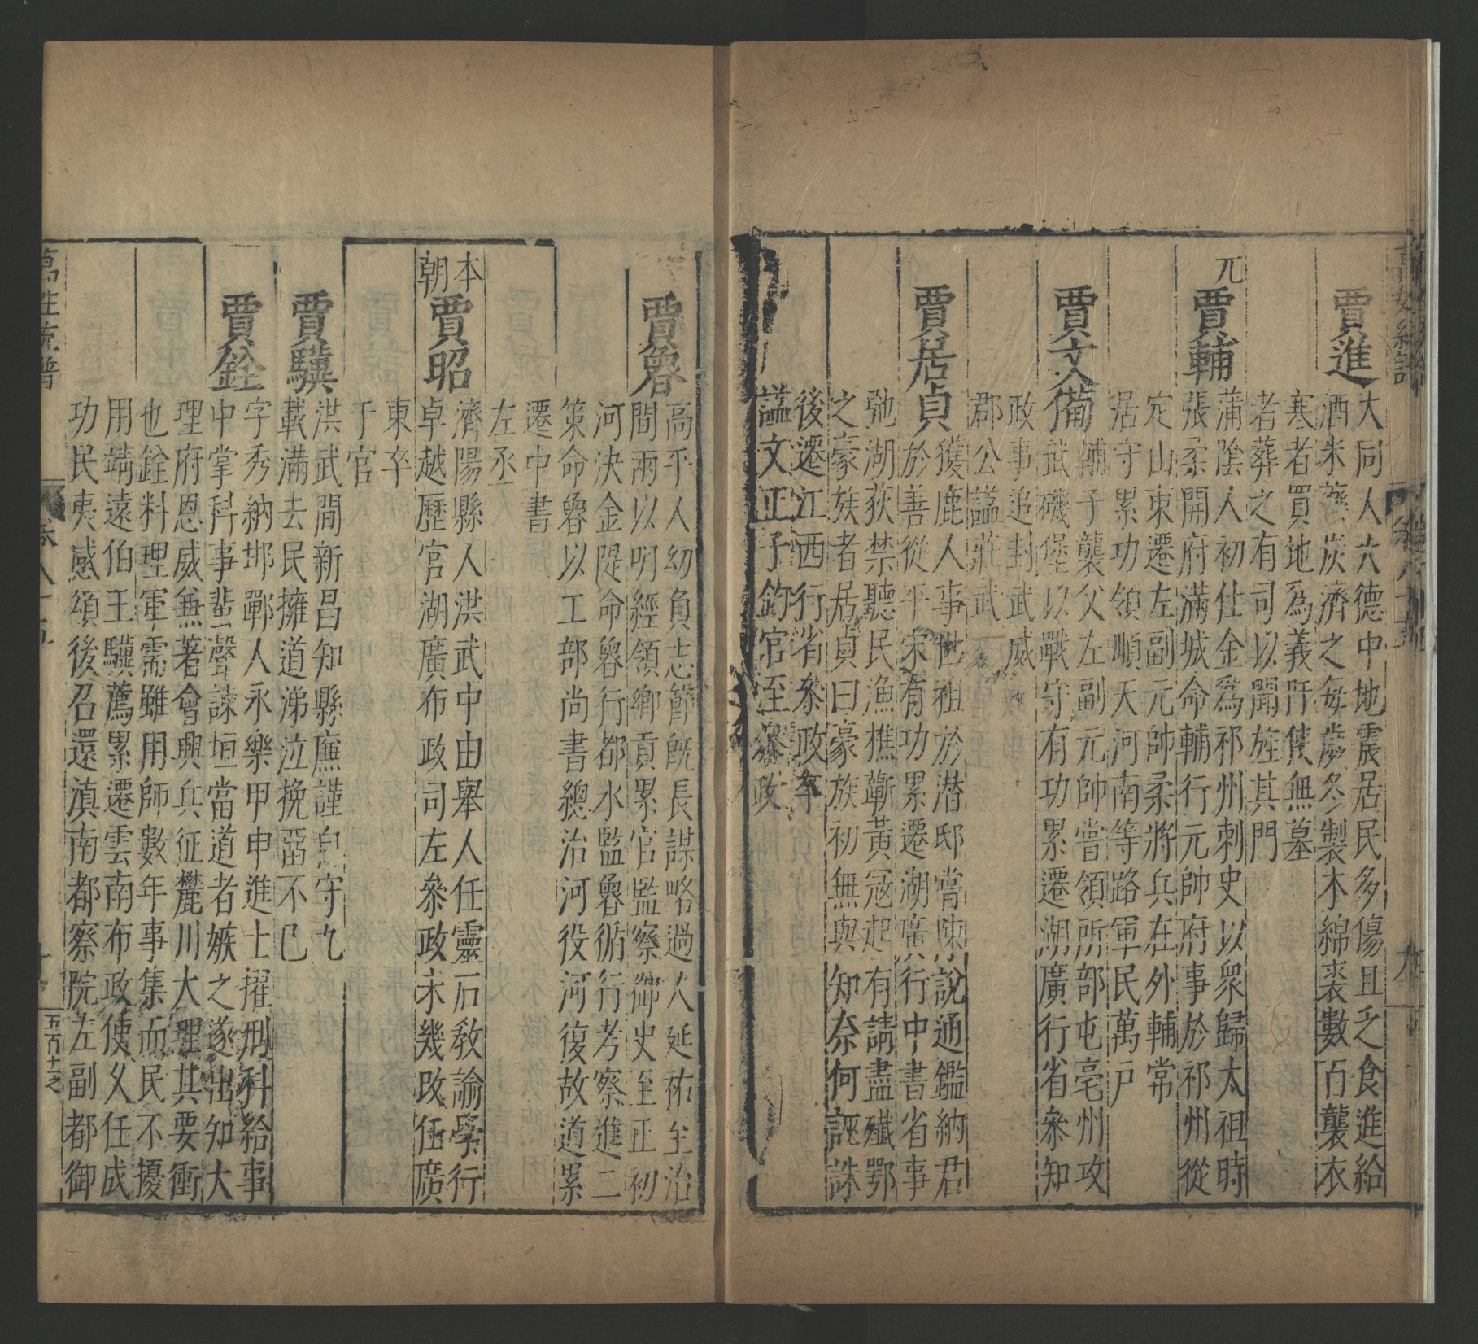 賈進
大同人大德中地震居民多傷且乏食進給
酒米藥炭濟之每歲冬製木綿裘數百襲衣
寒者買地為義阡使無墓
者葬之有司以聞旌其門
元
賈輔
蒲陰人初仕金為祁州刺史以眾歸太祖時
張柔開府滿城命輔行元帥府事於祁州從
定山東遷左副元帥柔將兵在外輔常
居守累功領順天河南等路軍民萬戶
賈文備
輔子襲父左副元帥嘗領所部屯亳州攻
武磯堡以戰守有功累遷湖廣行省參知
政事追封武威
郡公諡莊武
賈居貞
獲鹿人事世祖於潛邸嘗陳說通鑑納君
於善從平宋有功累遷湖廣行中書省事
弛湖荻禁聽民漁樵蘄黃冦起有請盡殲鄂
之豪族者居貞曰豪族初無與知奈何誣誅
後遷江西行省參政卒
諡文正子鈞官至參政
賈魯
高平人幼負志節旣長謀略過人延祐至治
間兩以明經領鄉貢累官監察御史至正初
河決金隄命魯行都水監魯循行考察進二
策命魯以工部尚書總治河役河復故道累
遷中書
左丞
本朝
賈昭
濟陽縣人洪武中由舉人任靈石敎諭學行
卓越歷官湖廣布政司左參政未幾改任廣
東卒
于官
賈驥
洪武間新昌知縣廉謹自守九
載滿去民擁道涕泣挽畱不已
賈銓
字秀納邯鄲人永樂甲申進士擢刑科給事
中掌科事蜚聲諫垣當道者嫉之遂出知大
理府恩威兼著會興兵征麓川大理其要衝
也銓料理軍需雖用師數年事集而民不擾
用靖遠伯王驥薦累遷雲南布政使乂任成
功民夷感頌後召還滇南都察院左副都御
萬姓統譜
卷八十五
五百十二